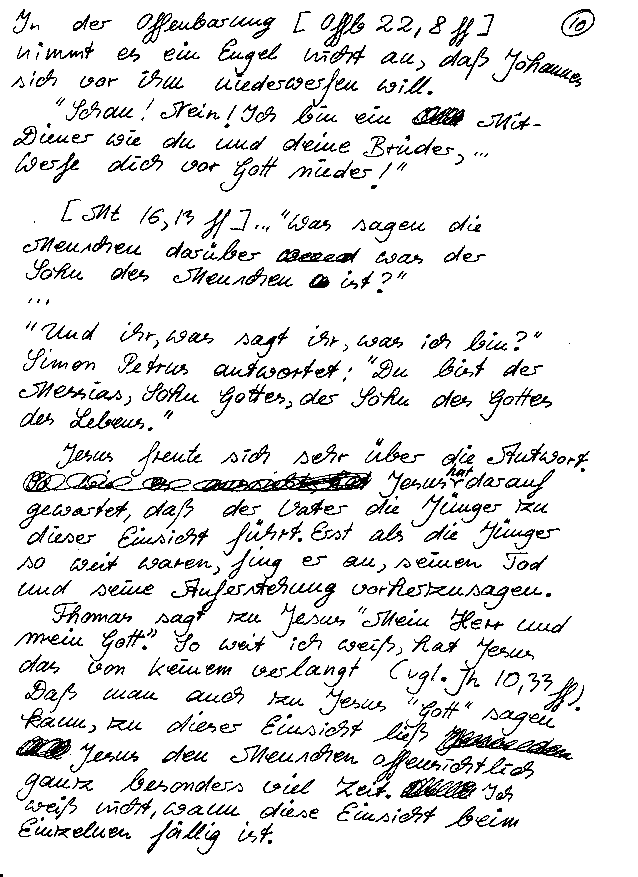 In der Offenbarung [Offb 22,8 ff]
10
nimmt es ein Engel nicht an, daß Johannes
sich vor ihm niederwerfen will.
"Schau! Nein! Ich bin ein Mit-
Diener wie du und deine Brüder,...
Werfe dich vor Gott nieder!"
[Mt 16,13 ff]... "Was sagen die
Menschen darüber was der
Sohn des Menschen ist?"
...
"Und ihr, was sagt ihr, was ich bin?"
Simon Petrus antwortet: "Du bist der
Messias, Sohn Gottes, der Sohn des Gottes
des Lebens."
Jesus freute sich sehr über die Antwort.
Jesus hat darauf
gewartet, daß der Vater die Jünger zu
dieser Einsicht führt. Erst als die Jünger
so weit waren, fing er an, seinen Tod
und seine Auferstehung vorherzusagen.
Thomas sagt zu Jesus "Mein Herr und
mein Gott". So weit ich weiß, hat Jesus
das von keinem verlangt (vgl. Jh 10,33 ff).
Daß man auch zu Jesus "Gott" sagen
kann, zu dieser Einsicht ließ
Jesus den Menschen offensichtlich
ganz besonders viel Zeit. Ich
weiß nicht, wann diese Einsicht beim
Einzelnen fällig ist.